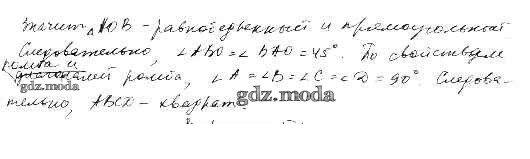 Значит △AOB - равнобедренный и прямоугольный
Следовательно, ∠ABO = ∠BAO = 45°. По свойствам
ромба и
диагоналей ромба, ∠A = ∠B = ∠C = ∠D = 90°. Следова-
gdz.moda
тельно, ABCD - квадрат.
gdz.moda